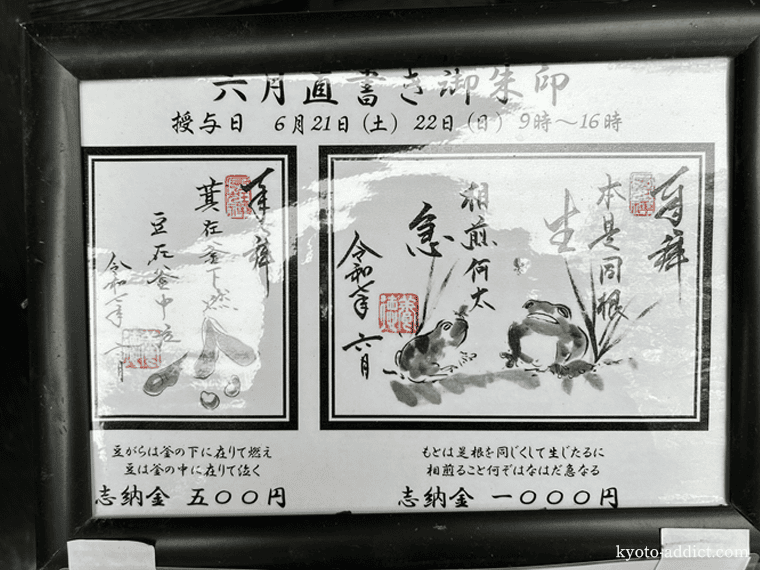 六月直書き御朱印
授与日 6月21日(土) 22日(日) 9時〜16時
奉拝
萁在釜下燃
豆在釜中泣
令和七年 六月
奉拝
本是同根
生
相煎何太
急
令和七年 六月
豆がらは釜の下に在りて燃え
豆は釜の中に在りて泣く
志納金 五〇〇円
もとは是根を同じくして生じたるに
相煎ること何ぞはなはだ急なる
志納金 一〇〇〇円
kyoto-addict.com